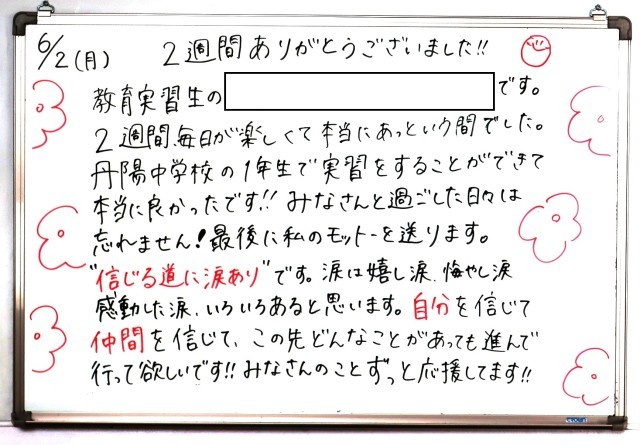 6/2(月) 2週間ありがとうございました!!
教育実習生の です。
2週間毎日が楽しくて本当にあっという間でした。
丹陽中学校の1年生で実習をすることができて
本当に良かったです!! みなさんと過ごした日々は
忘れません!最後に私のモットーを送ります。
"信じる道に涙あり"です。涙は嬉し涙、悔やし涙
感動した涙、いろいろあると思います。自分を信じて
仲間を信じて、この先どんなことがあっても進んで
行って欲しいです!! みなさんのことずっと応援してます!!